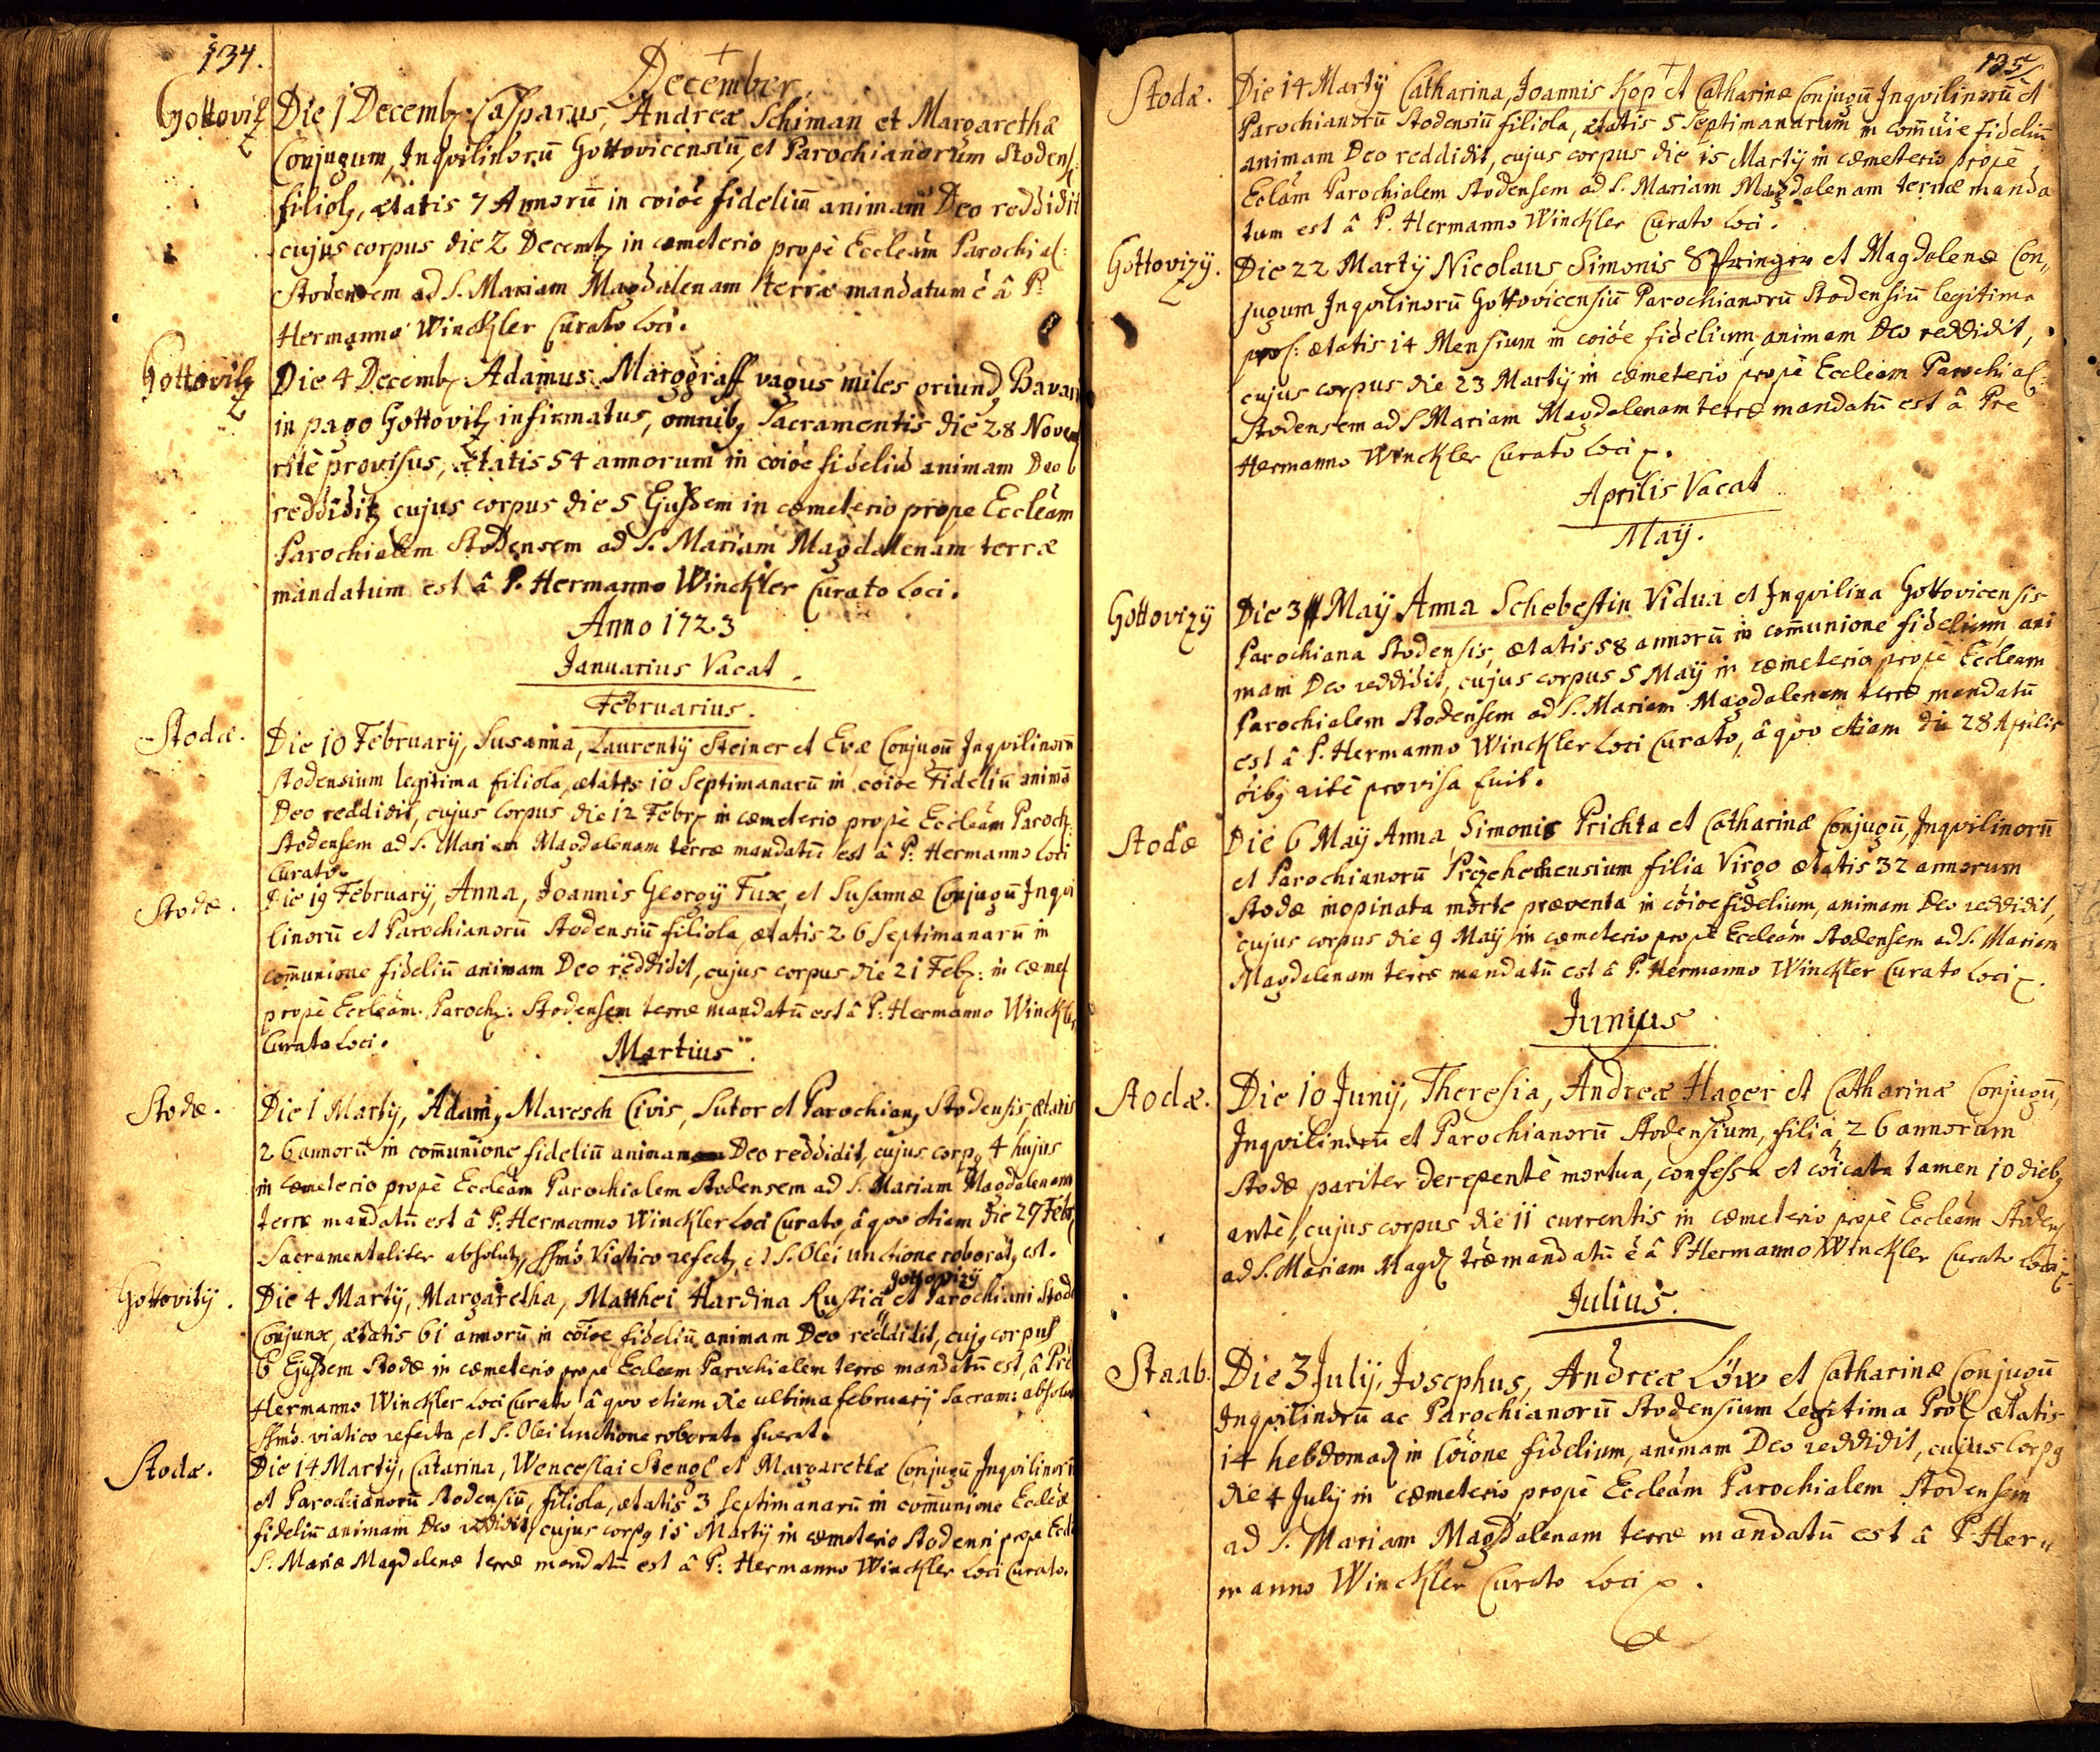 134.
December
Gottovitz
Die 1 Decemb: Casparus, Andreæ Schiman et Margarethæ
Conjugum, Inqvilinorū Gottovicensiū, et Parochianorum Stodens:
filiolq, ætatis 7 Annorū in coiōe fidelium animam Deo reddidit
cujus corpus die 2 Decemb in cæmeterio propè Eccleām Parochial:
Stodensem ad S. Mariam Magdalenam terræ mandatum ē â P:
Hermanno Winckler Curato Loci.
Gottovitz
Die 4 Decemb: Adamus Marggraff vagus miles oriundq Bavar
in pago Gottovitz infirmatus, omnibq Sacramentis die 28 Novem
ritè provisus, ætatis 54 annorum in coiōe fideliū animam Deo
reddidit, cujus corpus die 5 Ejusdem in cæmeterio prope Eccleām
Parochialem Stodensem ad S. Mariam Magdalenam terræ
mandatum est â P. Hermanno Winckler Curato Loci.
Anno 1723
Januarius Vacat.
Februarius.
Stodæ.
Die 10 February, Susanna, Laurentij Steiner et Evæ Conjugū Inqvilinorū
Stodensium legitima filiola, ætatis 10 Septimanarū in coiōe Fideliū animā
Deo reddidit, cujus corpus die 12 Febr: in cæmeterio propè Eccleām Paroch:
Stodensem ad S. Mariam Magdalenam terræ mandatū est â P: Hermanno Loci
Curato.
Stodæ.
Die 19 February, Anna, Joannis Georgij Fux, et Susannæ Conjugū Inqvi
linorū et Parochianorū Stodensiū filiola, ætatis 26 Septimanarū in
com̄unione fideliū animam Deo reddidit, cujus corpus die 21 Feb: in cæmet
propè Eccleām Paroch: Stodensem terræ mandatū est â P: Hermanno Winckler
Curato Loci.
Martius
Stodæ.
Die 1 Martij, Adamq Maresch Civis, Sutor et Parochianq Stodensis, ætatis
26 annorū in com̄unione fideliū animam Deo reddidit, cujus corpq 4 hujus
in cæmeterio propè Eccleām Parochialem Stodensem ad S. Mariam Magdalenam
terræ mandatū est â P: Hermanno Winckler Loci Curato, â qvo etiam die 27 Febr
Sacramentaliter absolutq, ssmo Viatico refectq, et S. Olei unctione roboratq est.
Gottovitij.
Gottovizij
Die 4 Martij, Margaretha, Matthei Hardina Rustici et Parochiani Stod
Conjunx, ætatis 61 annorū in coiōe fideliū animam Deo reddidit, cujq corpus
6 Ejusdem Stodæ in cæmeterio prope Eccleam Parochialem terræ mandatū est, â Pre
Hermanno Winckler Loci Curato, â qvo etiam die ultima february Sacram: absolu
ssmo viatico refecta, et S. Olei unctione roborata fuerat.
Stodæ.
Die 14 Martij, Catarina, Wenceslai Stengl et Margarethæ Conjugū Inqvilinorū
et Parochianorū Stodensiū, filiola, ætatis 3 Septimanarū in com̄unione Ecclæ
fideliū animam Deo reddidit, cujus corpq 15 Martij in cæmeterio Stodenni prope Eccl
S. Mariæ Magdalenæ terræ mandatū est â P: Hermanno Winckler Loci Curato.
135
Stodæ.
Die 14 Martij Catharina, Joannis Kop et Catharinæ Conjugū Inqvilinorū et
Parochianorū Stodensiū filiola, ætatis 5 Septimanarum in com̄uie fideliū
animam Deo reddidit, cujus corpus die 15 Martij in cæmeterio propè
Eclām Parochialem Stodensem ad S. Mariam Magdalenam terræ manda
tum est â P. Hermanno Winckler Curato Loci.
Gottovizij.
Die 22 Martij Nicolaus, Simonis Springer et Magdalenæ Con„
jugum Inqvilinorū Gottovicensiū Parochianorū Stodensiū legitima
prol: ætatis 14 Mensium in coiōe fidelium, animam Deo reddidit,
cujus corpus die 23 Martij in cæmeterio propè Eccleam Parochial:
Stodensem ad S Mariam Magdalenam terræ mandatū est â Pre
Hermanno Winckler Curato Loci.
Aprilis Vacat
May.
Gottovizij
Die 3 May Anna Schebestin Vidua et Inqvilina Gottovicensis
Parochiana Stodensis, ætatis 58 annorū in com̄unione fidelium, ani
mam Deo reddidit, cujus corpus 5 May in cæmeterio propè Eccleam
Parochialem Stodensem ad S. Mariam Magdalenam terræ mandatū
est â P. Hermanno Winckler Loci Curato, â qvo etiam die 28 Aprilis
oībq ritè provisa fuit.
Stodæ
Die 6 May Anna, Simonis Prichta et Catharinæ Conjugū, Inqvilinorū
et Parochianorū Przehechensium filia Virgo ætatis 32 annorum
Stodæ inopinata morte præventa in coiōe fidelium, animam Deo reddidit,
cujus corpus die 9 May in cæmeterio propè Eccleām Stodensem ad S. Mariam
Magdalenam terræ mandatū est â P. Hermanno Winckler Curato Loci.
Junius
Stodæ.
Die 10 Junij, Theresia, Andreæ Hager et Catharinæ Conjugū,
Inqvilinorū et Parochianorū Stodensium, filia, 26 annorum
Stodæ pariter derepentè mortua, confessa et coīcata tamen 10 diebq
antè, cujus corpus die 11 currentis in cæmeterio propè Eccleām Stodens
ad S. Mariam Magd træ mandatū ē â P Hermanno Winckler Curato Loci
Julius.
Staab.
Die 3 Julij, Josephus, Andreæ Löw et Catharinæ Conjugū
Inqvilinorū ac Parochianorū Stodensium Legitima Prol: ætatis
14 hebdomad in Coīone fidelium, animam Deo reddidit, cujus Corpq
die 4 July in cæmeterio propè Eccleām Parochialem Stodensem
ad S. Mariam Magdalenam terræ mandatū est â P. Her„
manno Winckler Curato Loci.